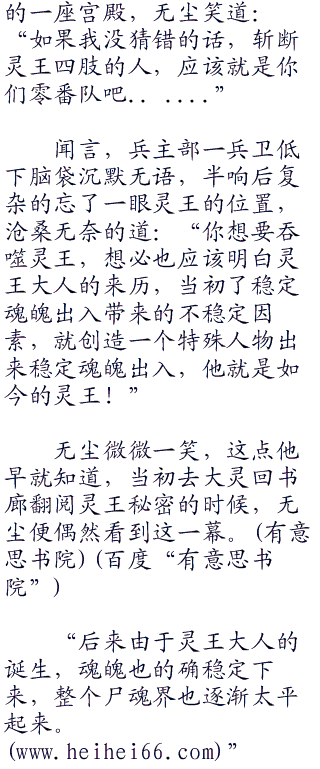 的一座宫殿，无尘笑道：
“如果我没猜错的话，斩断
灵王四肢的人，应该就是你
们零番队吧．．．．．．”
闻言，兵主部一兵卫低
下脑袋沉默无语，半响后复
杂的忘了一眼灵王的位置，
沧桑无奈的道：“你想要吞
噬灵王，想必也应该明白灵
王大人的来历，当初了稳定
魂魄出入带来的不稳定因
素，就创造一个特殊人物出
来稳定魂魄出入，他就是如
今的灵王！”
无尘微微一笑，这点他
早就知道，当初去大灵回书
廊翻阅灵王秘密的时候，无
尘便偶然看到这一幕。(有意
思书院)(百度“有意思书
院”)
“后来由于灵王大人的
诞生，魂魄也的确稳定下
来，整个尸魂界也逐渐太平
起来。
(www.heihei66.com)”